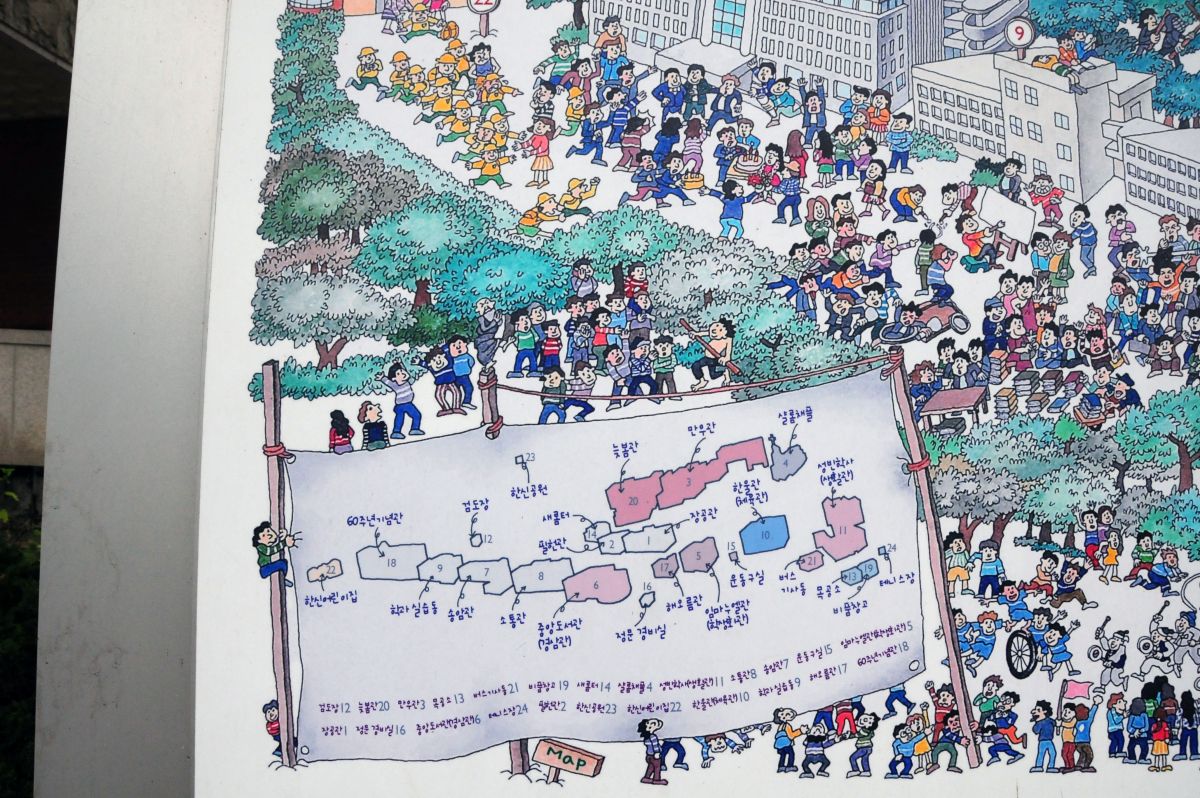 22
9
샬롬채플
만우관
늦봄관
4
23
한신공원
3
20
한울관
(체육관)
성빈학사
(생활관)
검도장
12
60주년기념관
새롬터
14
장공관
필헌관
2
1
10
11
18
9
7
8
6
5
17
15
16
21
13
19
24
22
한신어린이집
학과 실습동
송암관
소통관
중앙도서관
(경삼관)
정문 경비실
해오름관
임마누엘관
(학생회관)
운동구실
버스
기사동
목공소
비품창고
테니스장
검도장12 늦봄관20 만우관3 목공소13 버스기사동21 비품창고19 새롬터14 샬롬채플4 성빈학사(생활관)11 소통관8 송암관7 운동구실15 임마누엘관(학생회관)5
장공관1 정문 경비실16 중앙도서관(경삼관)6 테니스장24 필헌관2 한신공원23 한신어린이집22 한울관(체육관)10 학과 실습동9 해오름관17 60주년기념관18
MAP